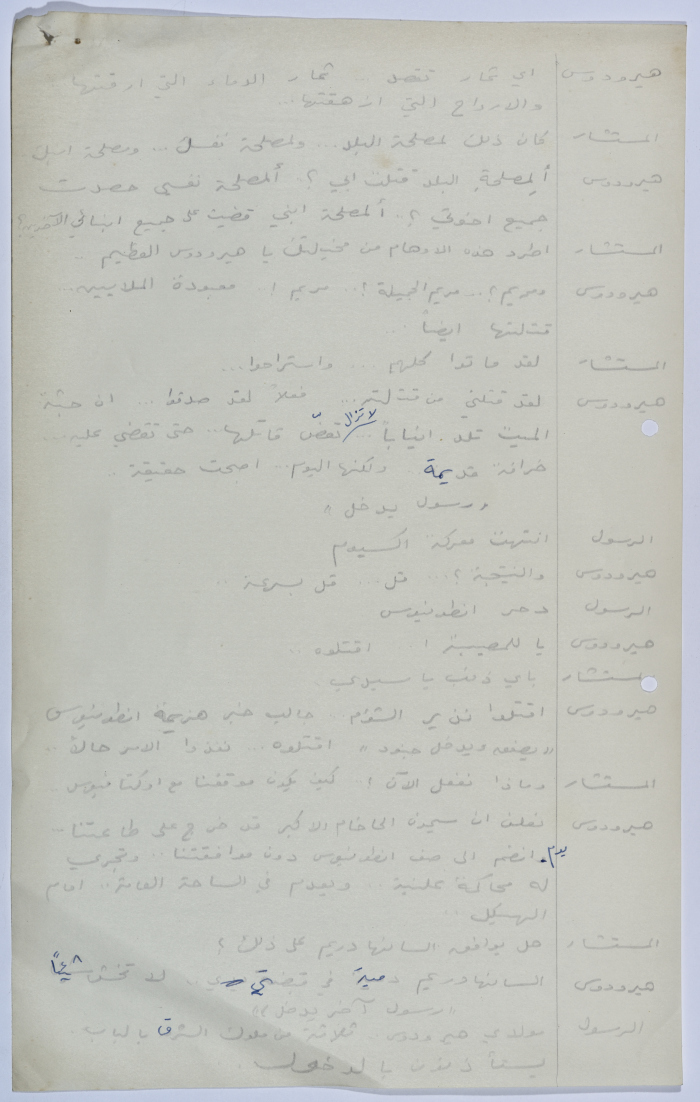 هيرودوس اي ثمار تقصد ... ثمار الدماء التي ارقتها
والارواح التي ازهقتها...
المستشار كان ذلك لمصلحة البلد ... ولمصلحة نفسك ... ومصلحة ابنك
هيرودوس ألمصلحة البلد قتلت ابي ؟.. ألمصلحة نفسي حصدت
جميع اخوتي ؟.. ألمصلحة ابني قضيت على جميع ابنائي الآخرين؟
المستشار اطرد هذه الاوهام من مخيلتك يا هيرودوس العظيم ..
هيرودوس ومريم ؟.. مريم الجميلة !.. مريم !.. معبودة الملايين...
قتلتها ايضاً ...
المستشار لقد ماتوا كلهم ... واستراحوا...
هيرودوس لقد قتلني من قتلته ... فعلاً لقد صدقوا ... ان جثة
الميت تلد انياباً ... لا تزال تعضّ قاتلها... حتى تقضي عليه...
خرافة قديمة . ولكنها اليوم... اصبحت حقيقة ..
" رسول يدخل "
الرسول انتهت معركة اكسيوم
هيرودوس والنتيجة ؟... قل ... قل بسرعة ..
الرسول دحر انطونيوس
هيرودوس يا للمصيبة !.. اقتلوه ..
المستشار باي ذنب يا سيدي .
هيرودوس اقتلوا نذير الشؤم .. جالب خبر هزيمة انطونيوس
" يصفق ويدخل جنود " اقتلوه ... نفذوا الامر حالاً ..
المستشار وماذا نفعل الآن !.. كيف يكون موقفنا مع اوكتافيوس ..
هيرودوس نعلن ان سيمون الحاخام الاكبر قد خرج على طاعتنا ...
يوم انضم الى صف انطونيوس دون موافقتنا .. وتجري
له محاكمة علنية .. ويعدم في الساحة العامة .. امام
الهيكل ..
المستشار هل يوافق السانهادريم على ذلك ؟
هيرودوس السانهادريم دمية في قبضتي .. لا تخش شيئاً
" رسول آخر يدخل "
الرسول مولاي هيرودوس .. ثلاثة من ملوك الشرق بالباب
يستأذنون بالدخول .